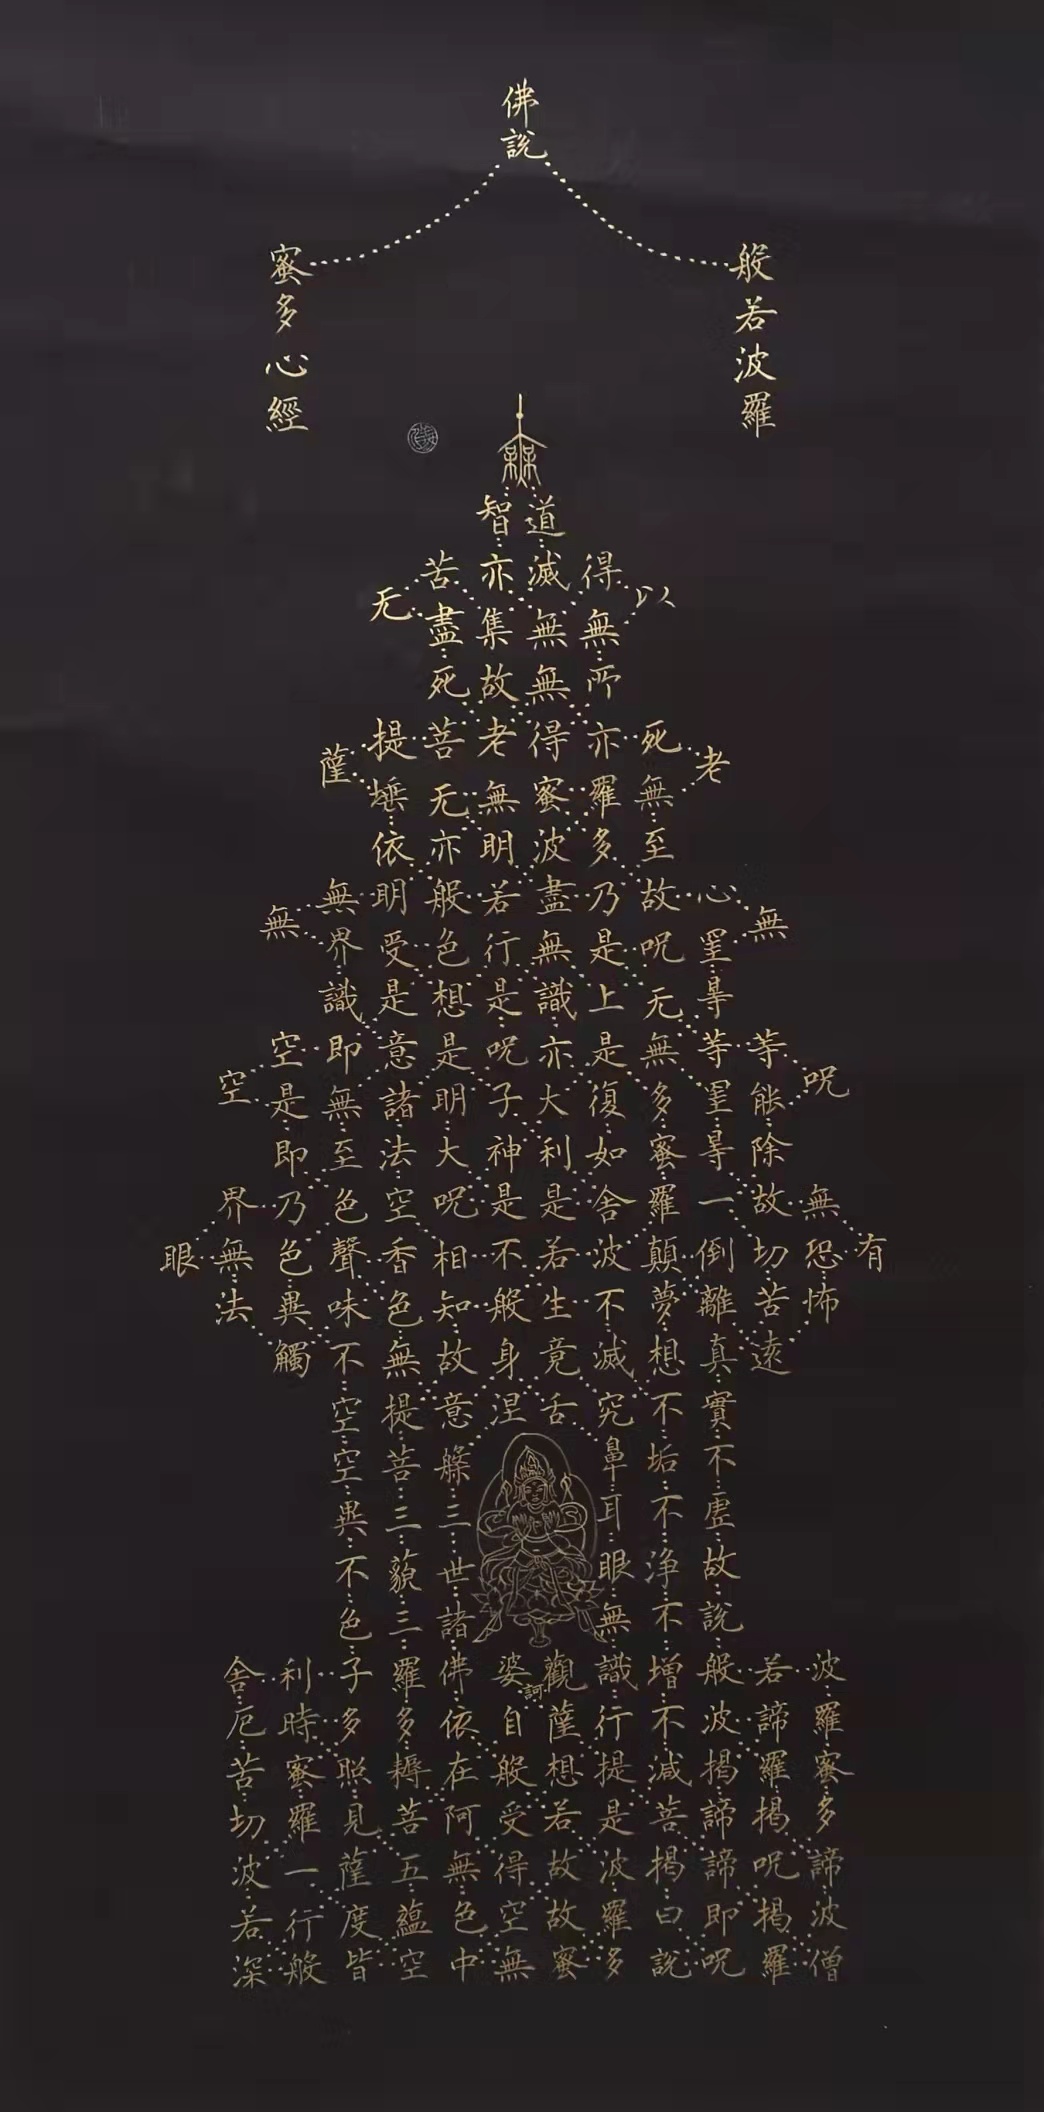 佛說
般若波羅
蜜多心經
有
呪
無恐怖
波羅蜜多諦波僧
無
等能除故切苦遠
若諦羅揭呪揭羅
老
心罣㝵等罣㝵一倒離真實不虛故說般波揭諦諦即呪
以
死無至故呪无無多蜜羅顛夢想不垢不浄不增不減菩揭曰說
得無所亦羅多乃是上是復如舍波不滅究鼻耳眼無識行提是波羅多
道滅無無得蜜波盡無識亦大利是若生竟舌
觀薩想若故故蜜
訶
智亦集故老無明若行是呪子神是不般身涅
婆自般受得空無
苦盡死菩无亦般色想是明大呪相知故意緣三世諸佛依在阿無色中
无
提埵依明受是意諸法空香色無提菩三藐三羅多耨菩五蘊空
薩
無界識即無至色聲味不空空異不色子多照見薩度皆
無
空是即乃色異觸
利時蜜羅一行般
空
界無法
舍厄苦切波若深
眼